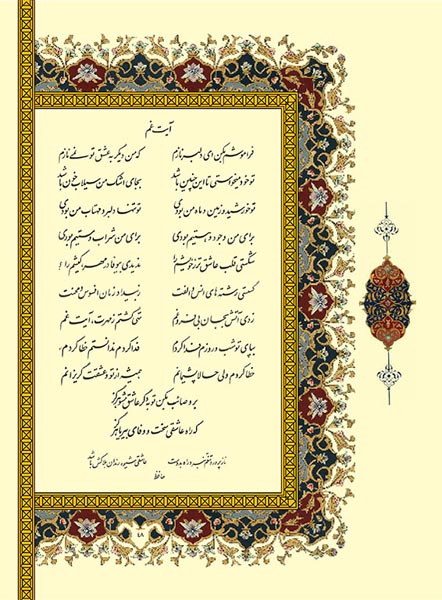 آیت غم
فراموشم مکن ای دلبر نازم که من دیگر به عشق تو نمی نازم
تو خود میخواستی تا این چنین باشد بجای اشک من سیلاب خون باشد
تو خورشید و زمین و ماه من بودی تو تنها دلبر و مهتاب من بودی
برای من وجود و هستیم بودی برای من شراب و مستیم بودی
شکستی قلب عاشق تر ز شیشم را ندیدی بیوفا در مهر
گسستی رشته های انس و الفت را افسوس و محنت
زدی آتش بجان بی فروغم تهی گشتم ز مهرت، آیت غم
بپای تو شب و روزم فدا کردم فدا کردم ندانستم خطا کردم،
خطا کردم ولی حالا پشیمانم همیشه از تو و عشقت گریزانم
برو صائب مکن توبه دگر عاشق مشو هرگز
که راه عاشقی سخت و وفا می میرد هرگز
ناز پرورد تنعم نبرد راه به دوست عاشقی شیوه رندان بلاکش باشد
حافظ
۴۸